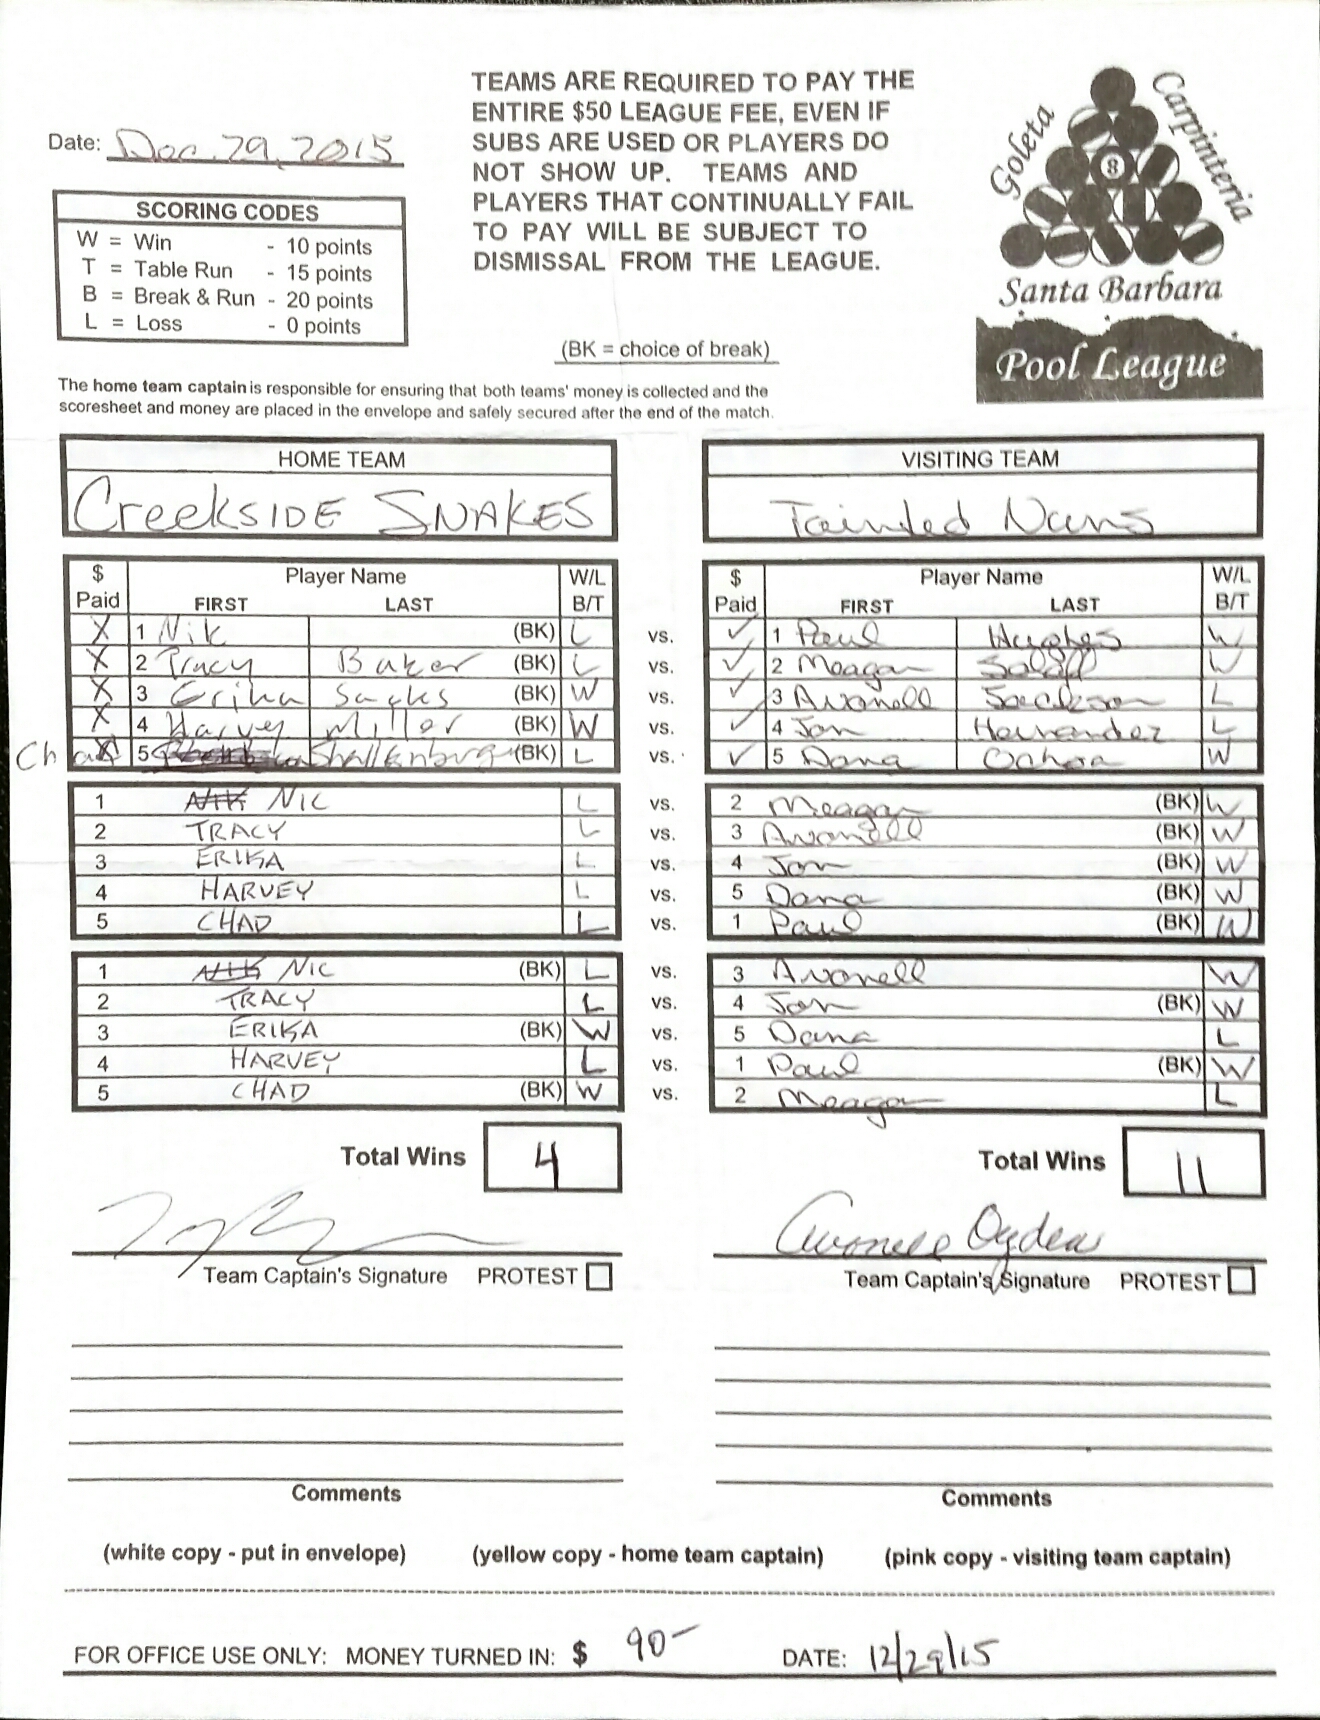 TEAMS ARE REQUIRED TO PAY THE
ENTIRE $50 LEAGUE FEE, EVEN IF
SUBS ARE USED OR PLAYERS DO
NOT SHOW UP. TEAMS AND
PLAYERS THAT CONTINUALLY FAIL
TO PAY WILL BE SUBJECT TO
DISMISSAL FROM THE LEAGUE.
Goleta
Carpinteria
8
Santa Barbara
Pool League
Date: Dec. 29, 2015
SCORING CODES
W = Win - 10 points
T = Table Run - 15 points
B = Break & Run - 20 points
L = Loss - 0 points
(BK = choice of break)
The home team captain is responsible for ensuring that both teams' money is collected and the
scoresheet and money are placed in the envelope and safely secured after the end of the match.
HOME TEAM
Creekside SNAKES
$ Paid Player Name FIRST LAST W/L B/T
X 1 Nik (BK) L vs.
X 2 Tracy Baker (BK) L vs.
X 3 Erika Sacks (BK) W vs.
X 4 Harvey Miller (BK) W vs.
Chad X 5 Shallenburg (BK) L vs.
1 NIC L vs.
2 TRACY L vs.
3 ERIKA L vs.
4 HARVEY L vs.
5 CHAD L vs.
1 NIC (BK) L vs.
2 TRACY L vs.
3 ERIKA (BK) W vs.
4 HARVEY L vs.
5 CHAD (BK) W vs.
Total Wins 4
Team Captain's Signature PROTEST
Comments
VISITING TEAM
Tainted Nuns
$ Paid Player Name FIRST LAST W/L B/T
✓ 1 Paul Hughes W
✓ 2 Meagan W
✓ 3 Avonell Jackson L
✓ 4 Jon Hernandez L
✓ 5 Dana Ochoa W
2 Meagan (BK) W
3 Avonell (BK) W
4 Jon (BK) W
5 Dana (BK) W
1 Paul (BK) W
3 Avonell W
4 Jon (BK) W
5 Dana L
1 Paul (BK) W
2 Meagan L
Total Wins 11
Avonell Ogden
Team Captain's Signature PROTEST
Comments
(white copy - put in envelope) (yellow copy - home team captain) (pink copy - visiting team captain)
FOR OFFICE USE ONLY: MONEY TURNED IN: $ 90- DATE: 12/29/15